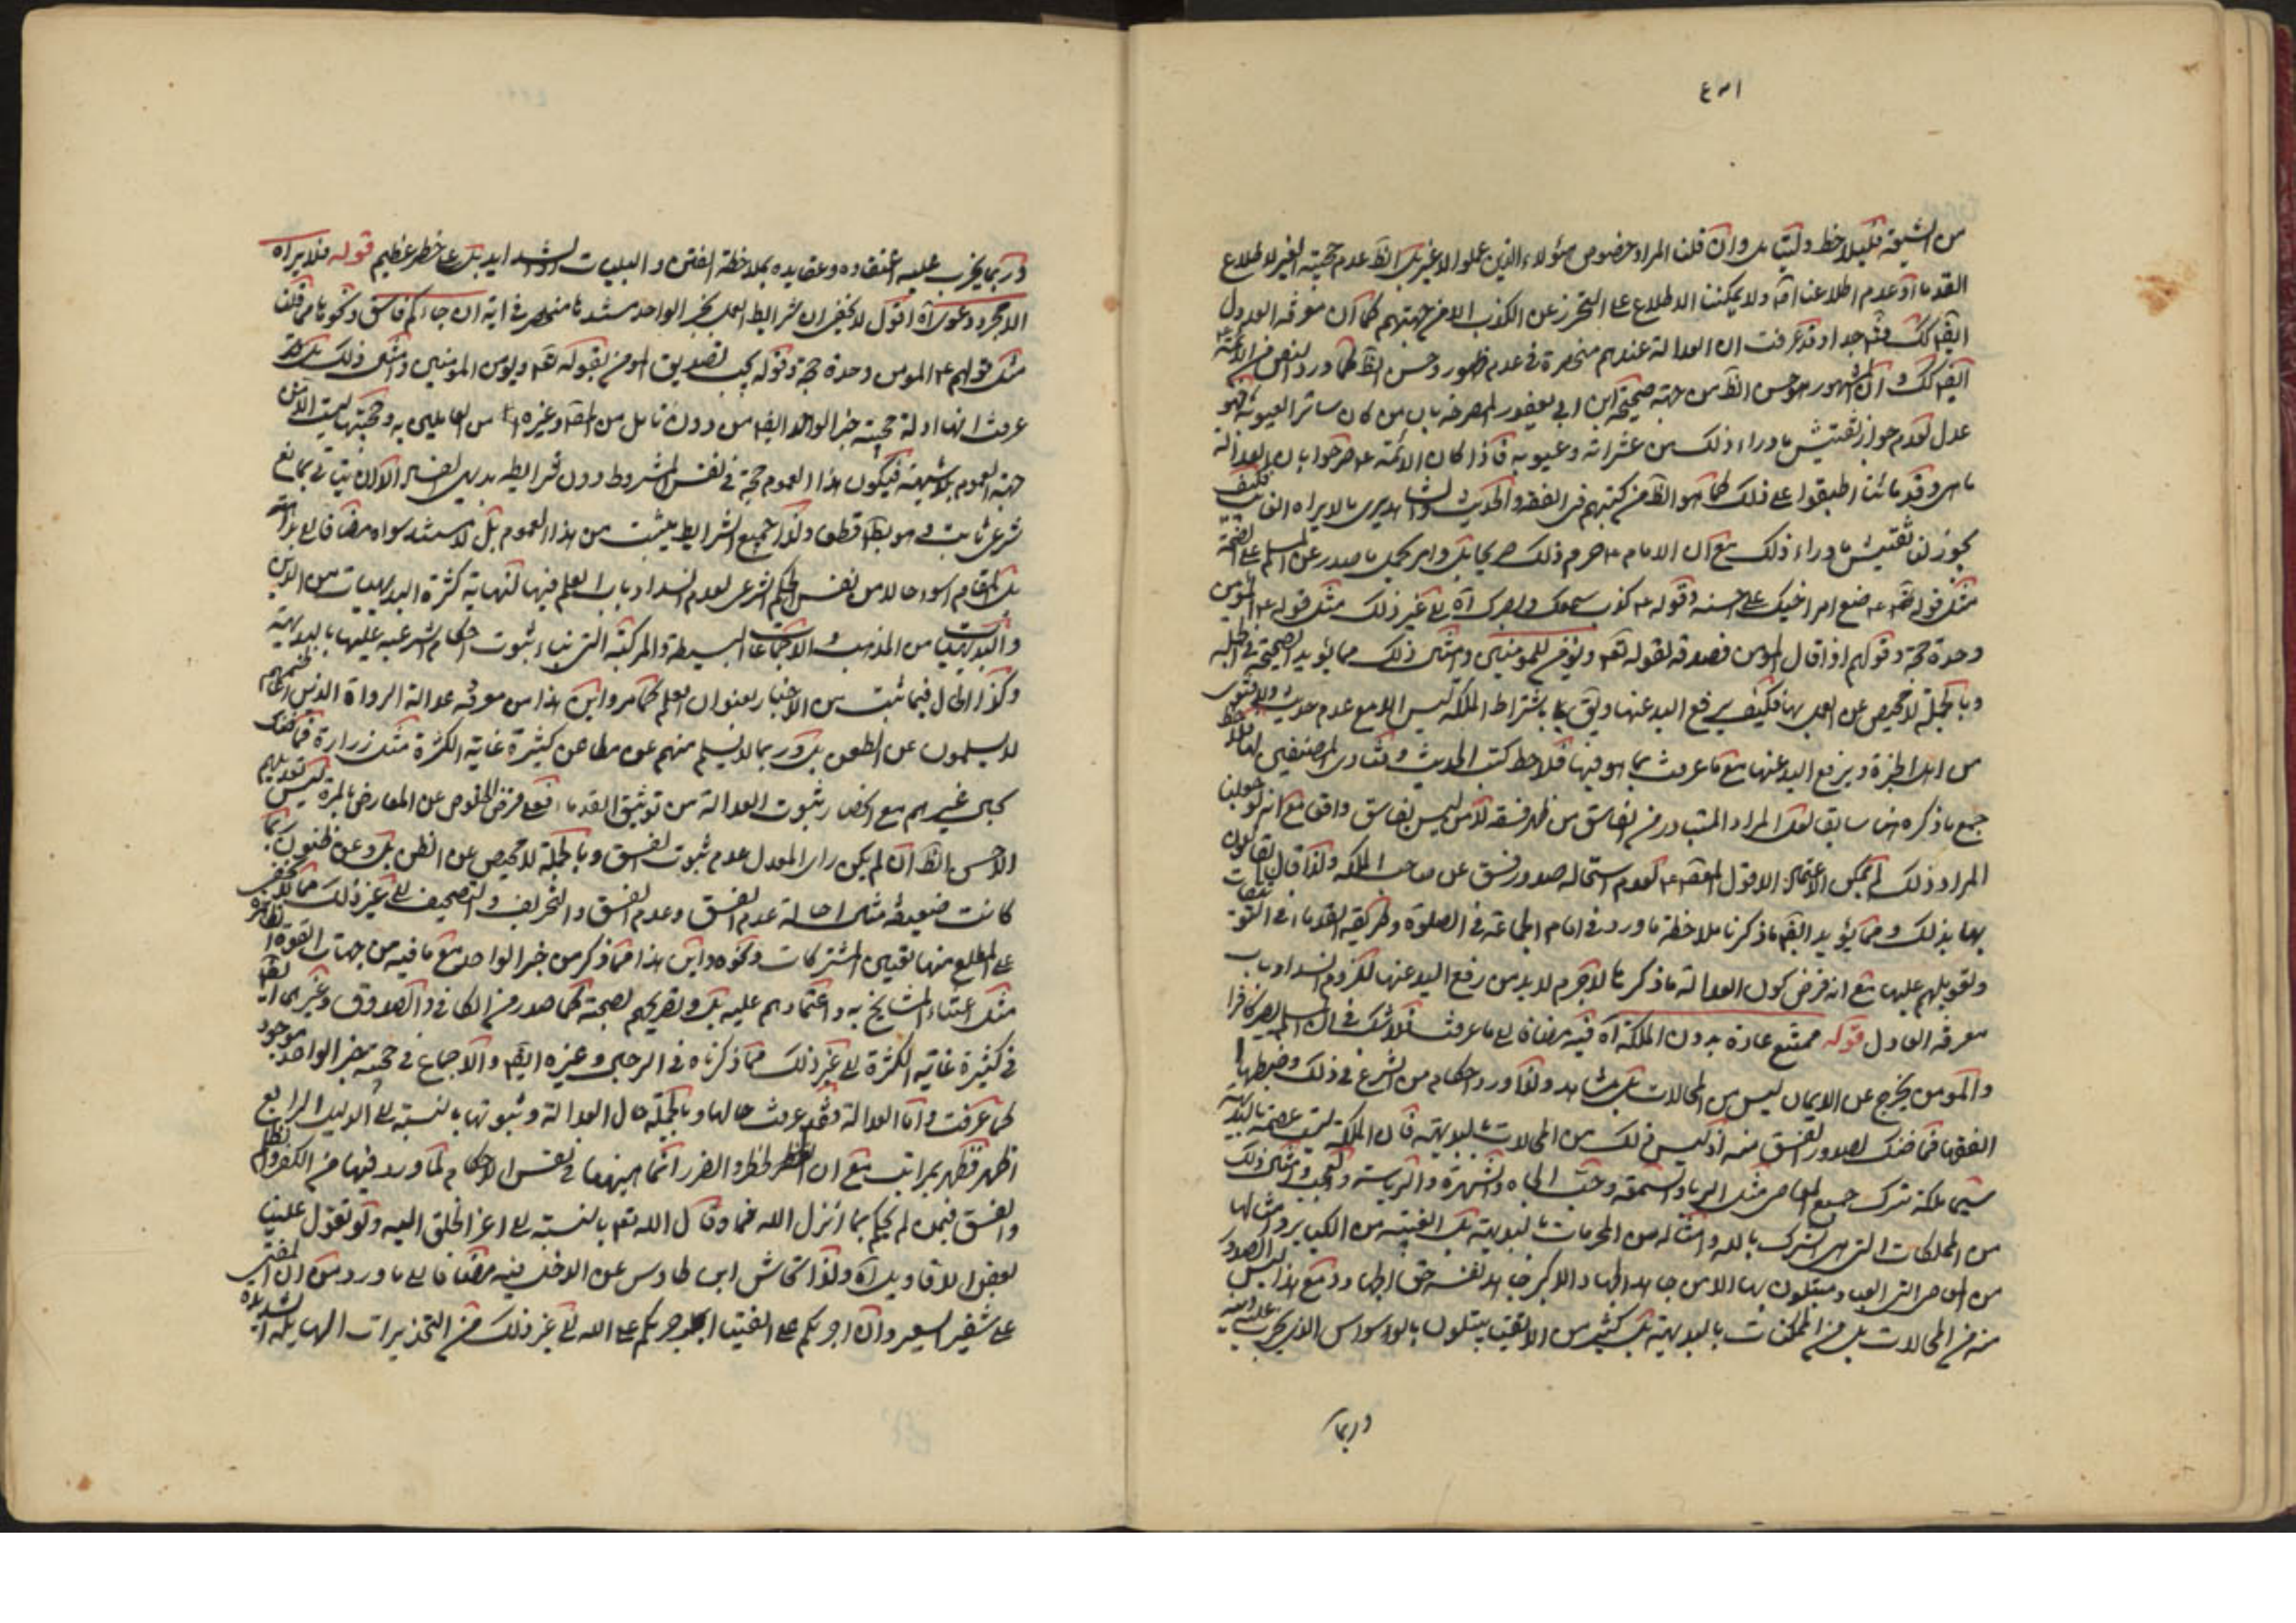 من الشيعة فكيلاحظ وليتامل وان قلت المراد خصوص هؤلاء الذين عملوا لا غير بل الظ عدم حجيته لغير لاطلاع
القدماء وعدم اطلاعنا اقول ولا يمكننا الاطلاع على التحرز عن الكذب الا من جهتهم كما ان معرفة العدول
ايضا كك وقد عرفت ان العدالة عندهم منحصرة في عدم ظهور وحسن الظ كما ورد النص من الائمة ع
ايضا كك وان المشهور هو حسن الظ من جهة صحيحة ابن ابي يعفور المصرحة بان من كان ساتر العيوبه فهو
عدل لعدم جواز تفتيش ما وراء ذلك من عثراته وعيوبه فاذا كان الائمة ع صرحوا بان العدالة
ماهي وقدمائنا اطبقوا على ذلك كما هو الظ من كتبهم في الفقه والحديث والشاهد يرى ما لا يراه الغائب فكيف
يجوز لنا تفتيش ما وراء ذلك مع ان الامام ع حرم ذلك صريحا بل وامر بحمل ما صدر عن المسلم على الصحة
مثل قولهم ع ضع امر اخيك على احسنه وقوله ع كذب سمعك وبصرك آه الى غير ذلك مثل قوله ع المؤمن
وحده حجة وقولهم اذا قال المؤمن فصدقه لقوله تعالى ويؤمن للمؤمنين وامثال ذلك مما يؤيد الصحيحة
وبالجملة لا محيص عن العمل بها فكيف يرفع اليد عنها ويق باشتراط الملكة ليس الا مع عدم
من اهل الخبرة ويرفع اليد عنها مع ما عرفت بما هو فيها فلاحظ كتب الحديث وفتاوى المصنفين
جمع ما ذكره هنا سابقا لعل المراد المتبادر من الفاسق من ظهر فسقه لا من ليس بفاسق واقعا مع انه لو جعلنا
المراد ذلك لم يمكن الاعتماد الا قول المعصوم ع لعدم استحالة صدور فسق عن صاحب الملكة ولذا قال القائلون
بها بذلك ومما يؤيد ايضا ما ذكرنا ملاحظة ما ورد في امام الجماعة في الصلوة وطريقة القدماء في التوثيقات
وتعويلهم عليها مع انه فرض كون العدالة ما ذكر ما لا جرم لا بد من رفع اليد عنها للزوم انسداد باب
معرفة العادل قوله ممتنع عادة بدون الملكة آه فيه مضافا الى ما عرفت فلا شك في ان المسلم يصير كافرا
والمؤمن يخرج عن الايمان ليس من المحالات بل مشاهد ولذا ورد احكام من الشرع في ذلك وضبطها
الفقهاء فما ظنك بصدور الفسق منه اذ ليس ذلك من المحالات بالبديهة فان الملكة ليست عصمة بالبديهة
سيما ملكة ترك جميع المعاصي مثل الريا والسمعة وحب الجاه والشهرة والرياسة والعجب وامثال ذلك
من الملكات التي هي الشرك بالله وامثاله من المحرمات بالبديهة بل الغيبة من الكبائر وامثالها
من المعاصي التي العباد مبتلون بها الا من جاهد الجهاد الاكبر جاهد نفسه حق الجهاد ومع هذا ليس الصدور
منه من المحالات بل من الممكنات بالبديهة بل كثير من الاتقياء يبتلون بالوسواس الذي يخرب
وربما
وربما يخرب عليه اعتقاده وعقايده بملاحظة الفتن والبليات والشدايد بل على خطر عظيم قوله فلا يراه
الا مجرد دعوى آه اقول لا يخفى ان شرايط العمل بخبر الواحد سندها منحصر في اية ان جاءكم فاسق ونحوها مما قلت
مثل قولهم ع المؤمن وحدة حجة وقوله يجب تصديق المؤمن بقوله تعالى ويؤمن للمؤمنين وامثال ذلك بل قد
عرفت انها ادلة حجية خبر الواحد ايضا من دون تامل من المص وغيره من القائلين به وحجيتها ليست الا من
جهة العموم بلا شبهة فيكون هذا العموم حجة في نفس المشروط دون شرايطه
شرعي ثابت وهو بط قطعا ولذا جميع الشرايط يثبت من هذا العموم بل لا مستند سواه مضافا الى
بل المقام اسوء حالا من نفس الحكم الشرعي لعدم انسداد باب العلم فيها لنهاية كثرة البديهيات من الدين
والبديهيات من المذهب والاجماعات البسيطة والمركبة التي بناء ثبوت احكام شرعية عليها بالبديهة
وكذا الحال فيما ثبت من الاخبار بعنوان العلم كما مر واين هذا من معرفة عدالة الرواة الذين
لا يسلمون عن الطعن بل وربما لا يسلم منهم عن مطاعن كثيرة غاية الكثرة مثل زرارة فما ظنك
بحال غيرهم مع انحصار ثبوت العدالة من توثيق القدماء فعلى فرض الخلوص عن المعارض بالمرة ليس تعديلهم
الا حسن الظ ان لم يكن راى المعدل عدم ثبوت الفسق وبالجملة لا محيص عن الظن بل وعن ظنون ربما
كانت ضعيفة مثل اصالة عدم الفسق وعدم السق والتحريف والتصحيف الى غير ذلك مما لا يخفى
على المطلع منها تعيين المشتركات ونحوه واين هذا مما ذكر من خبر الواحد مع ما فيه من جهات القوة الظاهرة
مثل اعتناء المشايخ به واعتمادهم عليه بل وتصريحهم بصحته كما صدر من الكافي والصدوق وغيرهما ايضا
في كثيرة غاية الكثرة الى غير ذلك مما ذكرناه في الرجال وغيره ايضا والاجماع في حجية خبر الواحد موجود
كما عرفت واما العدالة فقد عرفت حالها وبالجملة حال العدالة وثبوتها بالنسبة الى الدليل الرابع
اظهر فظهر بمراتب مع ان الخطر والضرر انما هيهنا في نفس الاحكام لما ورد فيها من الكفر والظلم
والفسق فيمن لم يحكم بما انزل الله فما وقال الله تعالى بالنسبة الى اعز الخلق اليه ولو تقول علينا
بعض الاقاويل آه ولذا تحاش ابن طاوس عن الدخل فيه مضافا الى ما ورد من ان المفتى
على شفير السعير وان اجرئكم على الفتيا اجرئكم على الله الى غير ذلك من التحذيرات الهايلة الشديدة